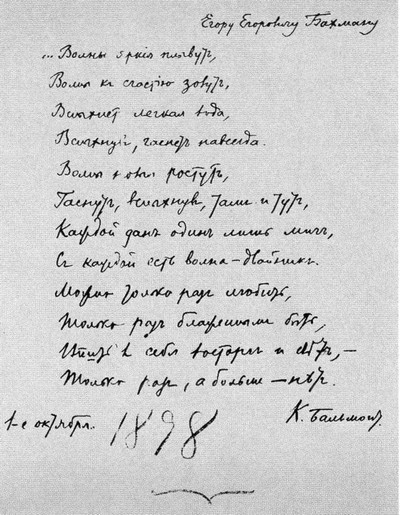 Егору Егоровичу Бахману
... Волны яркія плывутъ,
Волны къ счастію зовутъ,
Вспыхнетъ легкая вода,
Вспыхнувъ, гаснетъ навсегда.
Волны новыя ростутъ,
Гаснутъ, вспыхнувъ, тамъ и тутъ,
Каждой данъ одинъ лишь мигъ,
Съ каждой есть волна-двойникъ.
Можно только разъ любить,
Только разъ блаженнымъ быть,
Впить въ себя восторгъ и свѣтъ,—
Только разъ, а больше—нѣтъ.
К. Бальмонтъ.
1-е октября. 1898